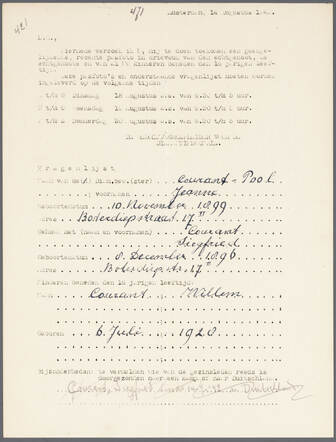 421
471
Amsterdam, 14 Augustus
L.S.,
Hiermede verzoek ik U, mij te doen toekomen een
recente pasfoto in drievoud van den echtgenoot, de
echtgenoote en van alle kinderen beneden den 16 jarigen leef-
tijd.
Deze pasfoto's en onderstaande vragenlijst moeten worden
ingeleverd op de volgende tijden:
Dinsdag 18 Augustus a.s. van 9.30 tot 5 uur.
Woensdag Augustus a.s. van 9.30 tot 5 uur.
Donderdag 20 Augustus a.s. van 9.30 tot 5 uur.
Vragenlijst
Naam van
Courant - Pool
voornamen
Jeanne
Geboortedatum 10 November 1899
Adres Boterdiepstraat 17 II
Gehuwd met (naam en voornamen) Courant
Siegfried
Geboortedatum 8 December 1896
Adres Boterdiepstr. 17 II
Kinderen beneden den 16 jarigen leeftijd:
Naam Courant, Willem
Geboren 6 Juli 1928
Bijzonderheden: te vermelden wie van de gezinsleden reeds is
doorgezonden naar een kamp of naar Duitschland
Courant, Siegfried